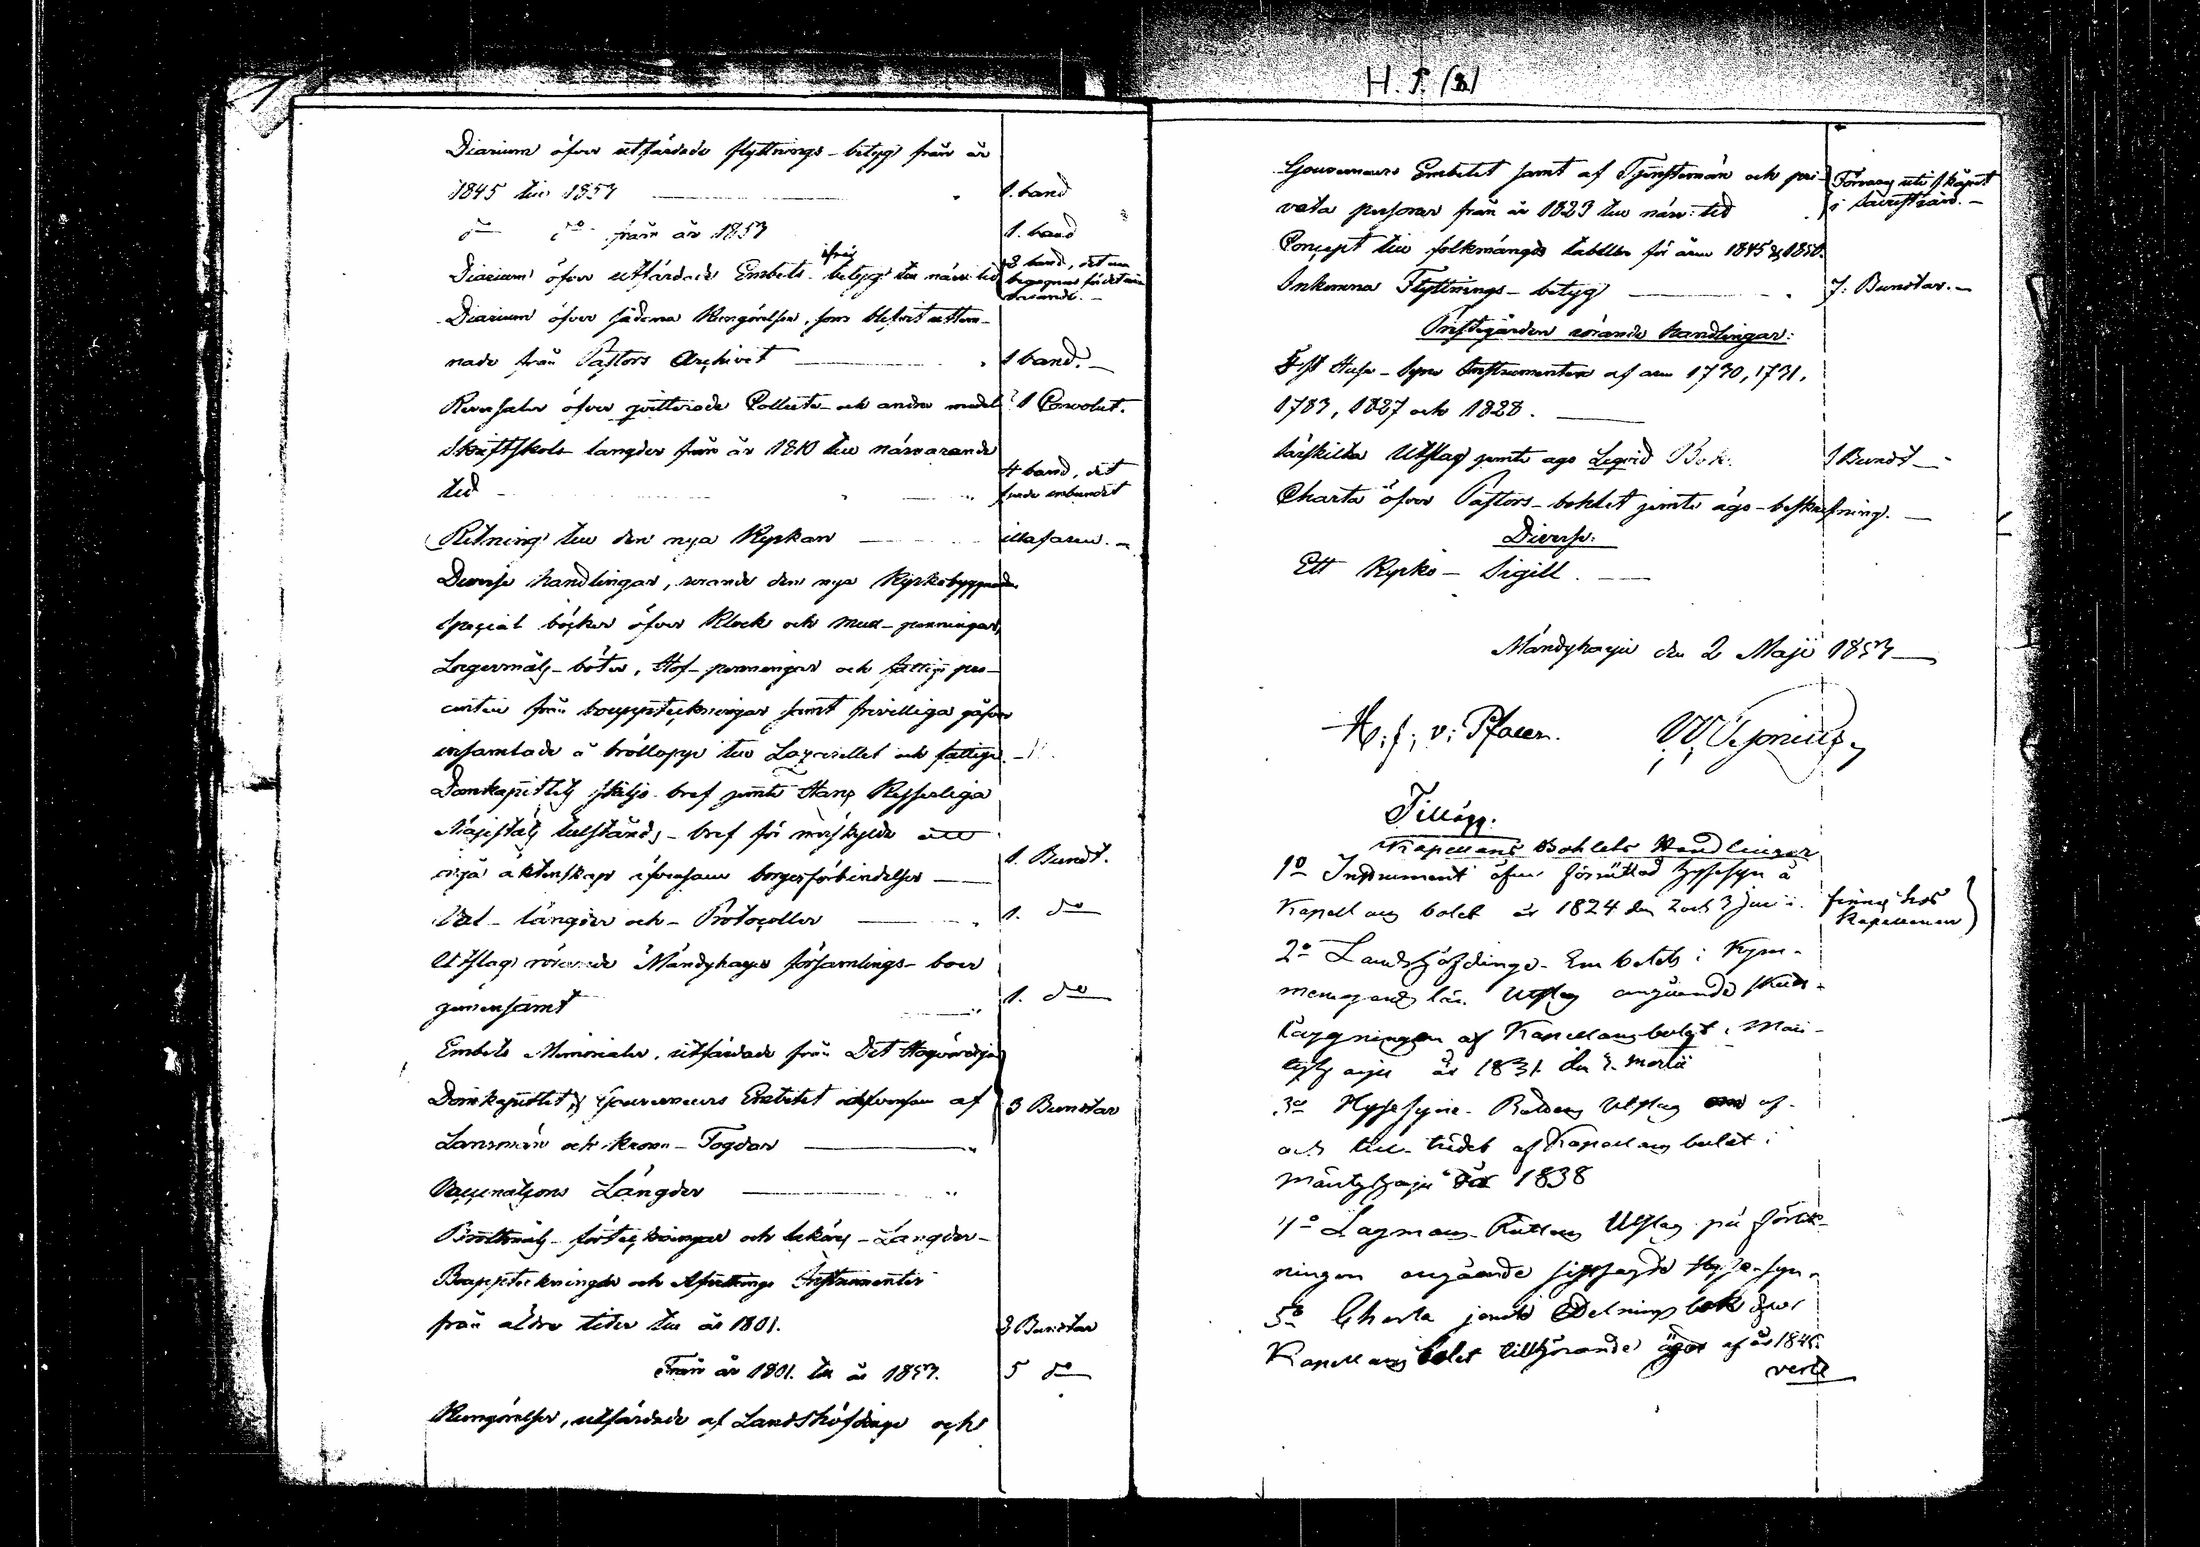 H. I (3)
Diarium öfver utfärdade flyttnings-betyg från år
1845 till 1857 1. band
do do från år 1857 1. band
Diarium öfver utfärdade Embets betyg till närv: tid 2 band, det ena
begagnas för det när-
varande.
Diarium öfver sådana Kungörelser, som blifvit utläm-
nade från Pastors Archivet 1 band.
Reversaler öfver qvitterade Collecte- och andra medel 1 Convolut.
Skriftskole längder från år 1810 till närvarande
tid 4 band, det
fjerde inbundet
Ritning till den nya Kyrkan illa faren.
Diverse handlingar, rörande den nya Kyrkobyggnaden
Special böcker öfver Klock och mull-penningar,
Lägermåls-böter, Håf-penningar och fattig pro-
centen från bouppteckningar samt frivilliga gåfvor
insamlade å bröllopper till Lazarettet och fattige
Domkapitlets skiljo-bref jemte Hans Kejserliga
Majestäts tillstånds-bref för
ingå äktenskap äfvensom borgesförbindelser 1. Bundt.
Val-längder och Protocoller 1. do
Utslag rörande Mändyharju församlings-boer
gemensamt 1. do
Embets Memorialer, utfärdade från Det Högvördiga
Domkapitlet, Gouverneurs Embetet äfvensom af
Länsmän och krono-Fogdar 3 Bundtar
Vaccinations Längder
Brottmåls-förteckningar och Längder-
Bouppteckningar och Afvittrings Instrumenter
från äldre tider till år 1801. 3 Bundtar
Från år 1801. till år 1857. 5 do
Kungörelser, utfärdade af Landshöfdinge och
Gouverneurs Embetet samt af Tjenstemän och pri-
vata personer från år 1823 till närv: tid Förvaras uti skåpet
i sacristian.
Concept till folkmängds tabeller för åren 1845 & 1850.
Inkomna Flyttnings-betyg 7. Bundtar.
Prestgården rörande handlingar:
4 st Huse-Syns Instrumenter af åren 1730, 1731,
1783, 1827 och 1828.
Särskilta Utslag jemte ägo Legvid Bok. 1 Bundt
Charta öfver Pastors-bohlet jemte ägo-beskrifning.
Diverse:
Ett Kyrko-Sigill.
Mändyharju den 2 Maji 1857
H. f. v. Pfaler.
Tillägg.
Kapellans Bohlets Handlingar
1o Instrument öfver förrättad Hysesyn å
Kapellans bolet år 1824 den 2 och 3 Juni. finnes hos
Kapellanen
2o Landshöfdinge-Embetets i Kym-
menegårds län Utslag angående skatt-
läggningen af Kapellansbolet i Män-
tyharju år 1831. den 3. Martii
3o Husesyne-Rättens Utslag om af-
och till-trädet af Kapellans bolet i
Mäntyharju år 1838
4o Lagmans-Rättens Utslag på förlik-
ningen angående sistsagde Huse-syn.
5o Charta jemte Delnings bok öfver
Kapellans bolet tillhörande ägor af år 1845.
verte